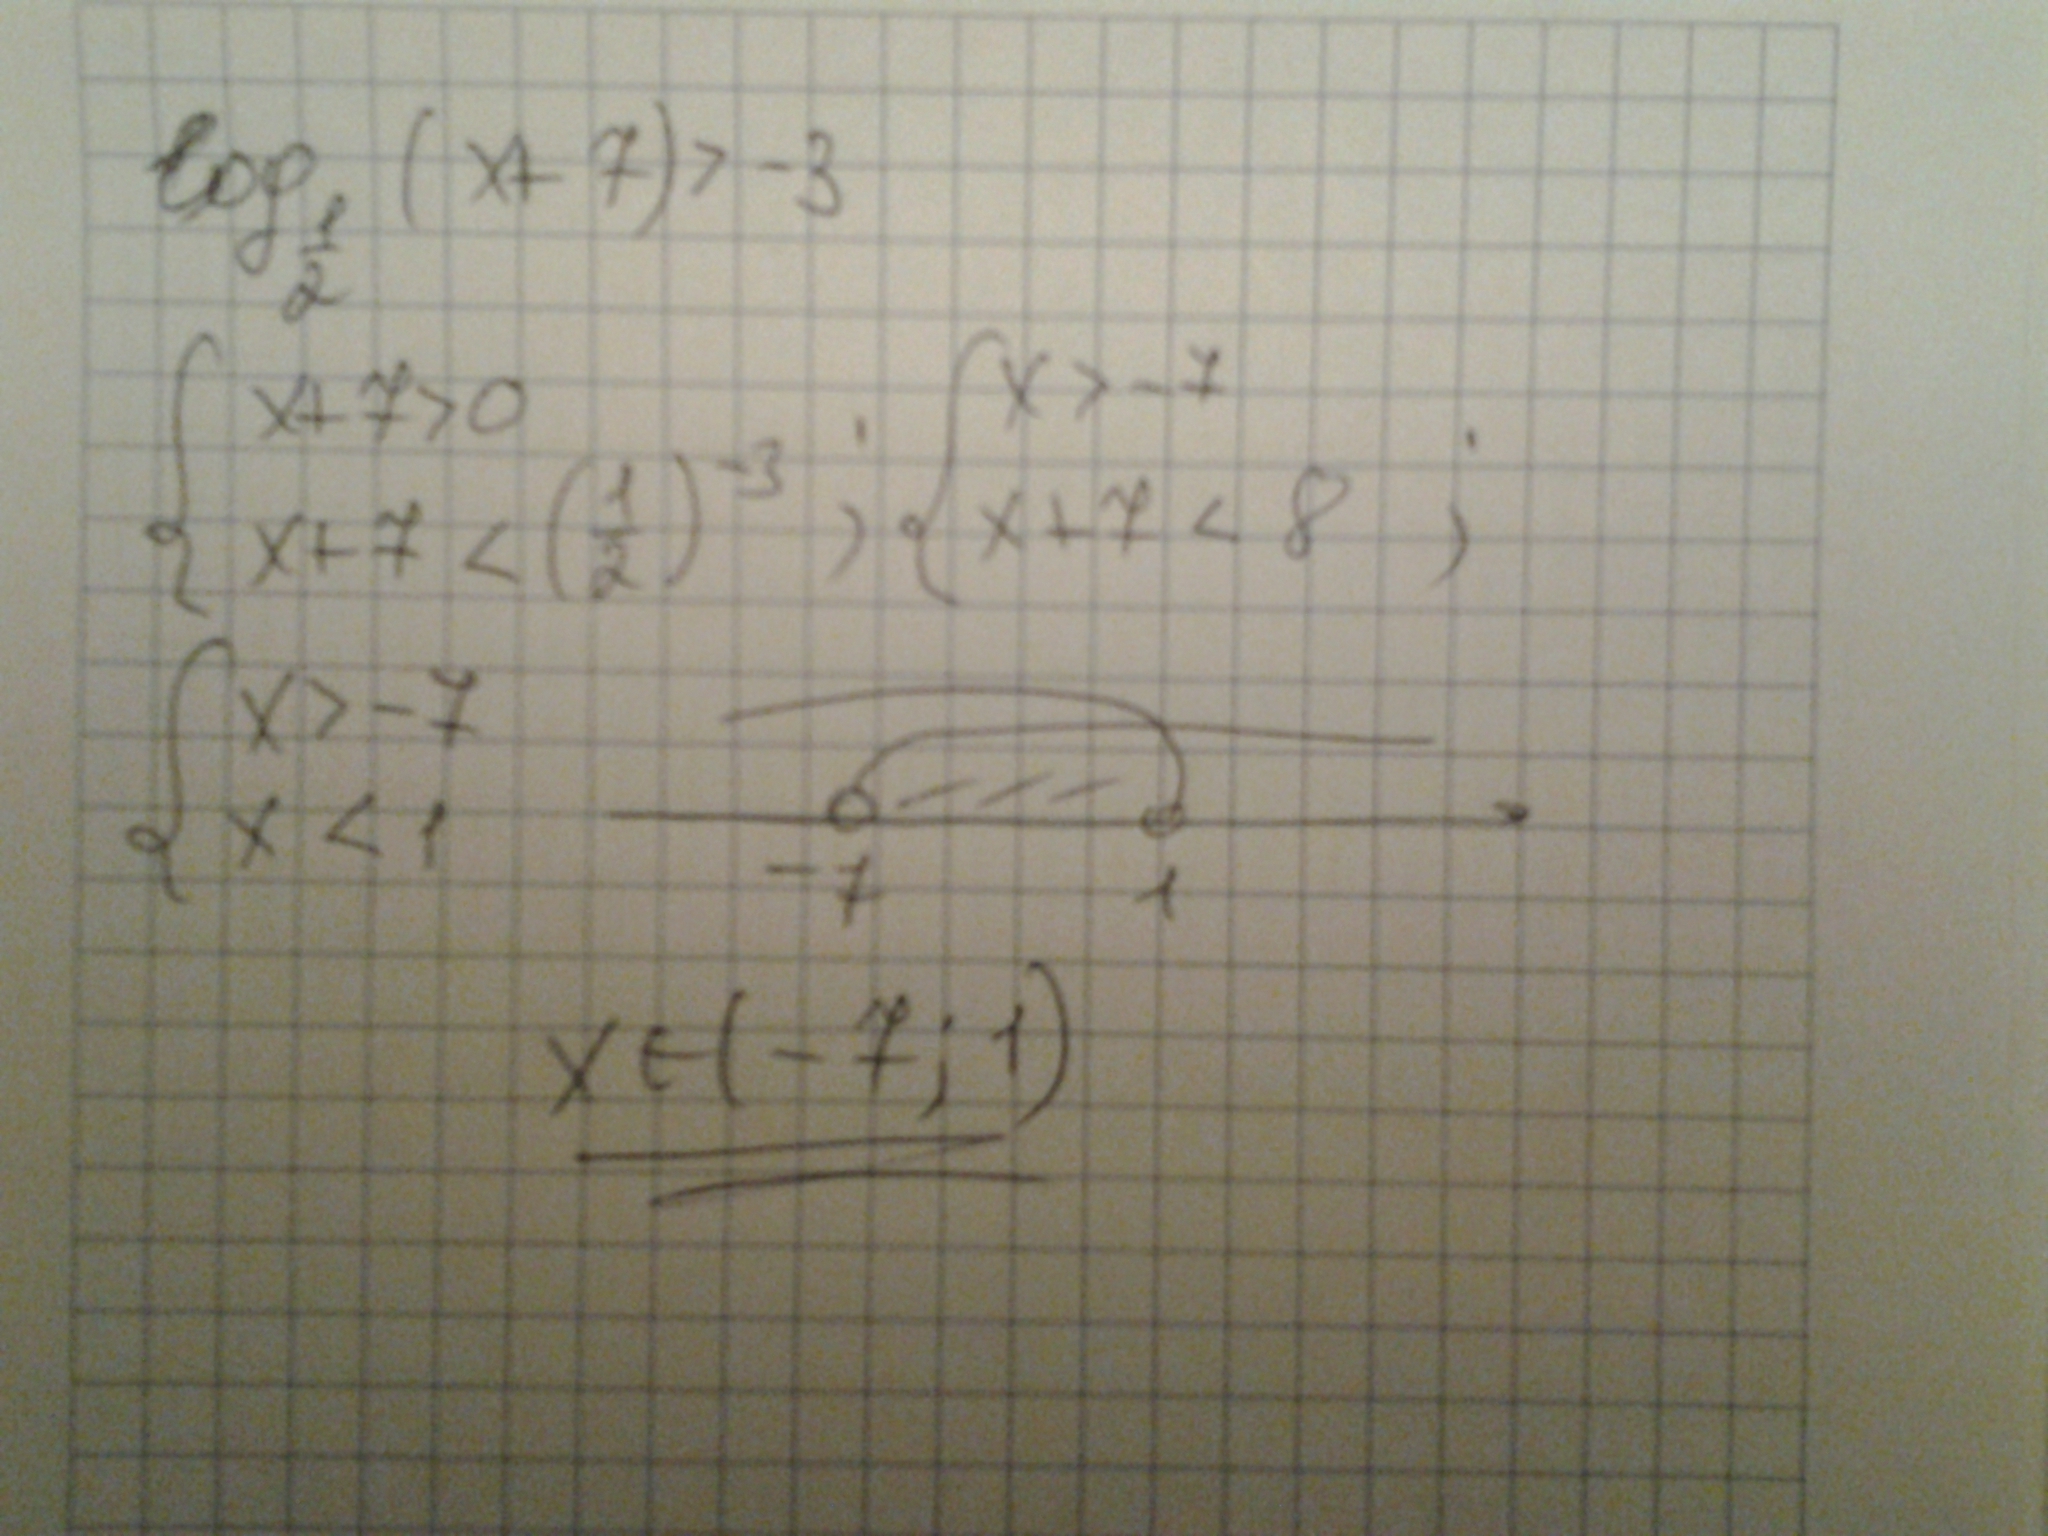 log_{1/2} (x+7) > -3
{ x+7>0 ; { x > -7 ;
x+7 < (1/2)^{-3} x+7 < 8
{ x > -7
x < 1
-7 1
x ∈ (-7; 1)